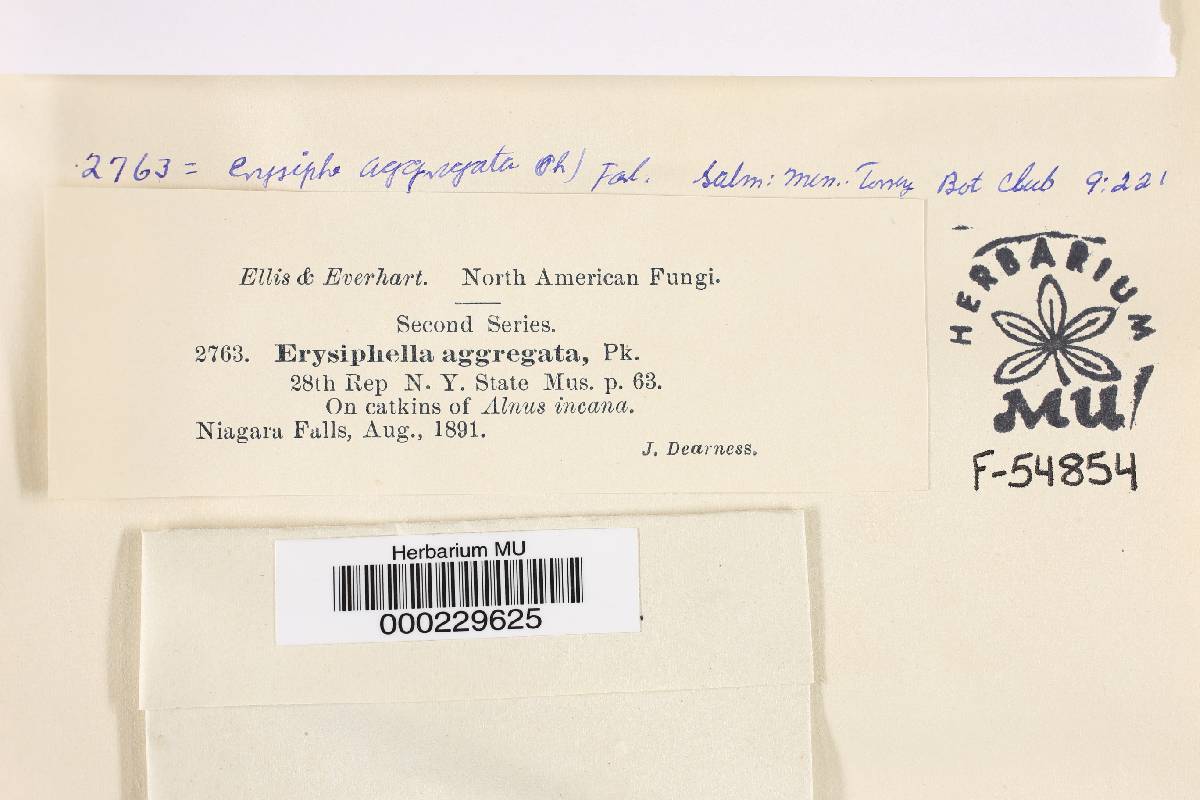 2763 = Erysiphe aggregata Pk) Farl. Salm: Mem. Torrey Bot Club 9:221
Ellis & Everhart. North American Fungi.
Second Series.
2763. Erysiphella aggregata, Pk.
28th Rep N. Y. State Mus. p. 63.
On catkins of Alnus incana.
Niagara Falls, Aug., 1891.
J. Dearness.
HERBARIUM
MU
F-54854
Herbarium MU
000229625